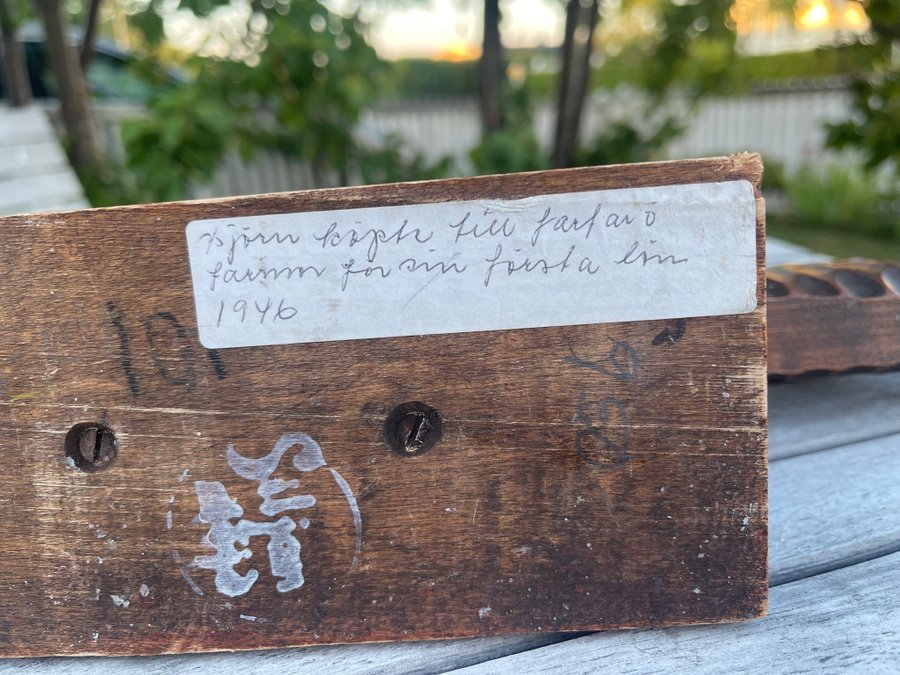 Björn köpte till farfar o
farmor för sin första lön
1946
101